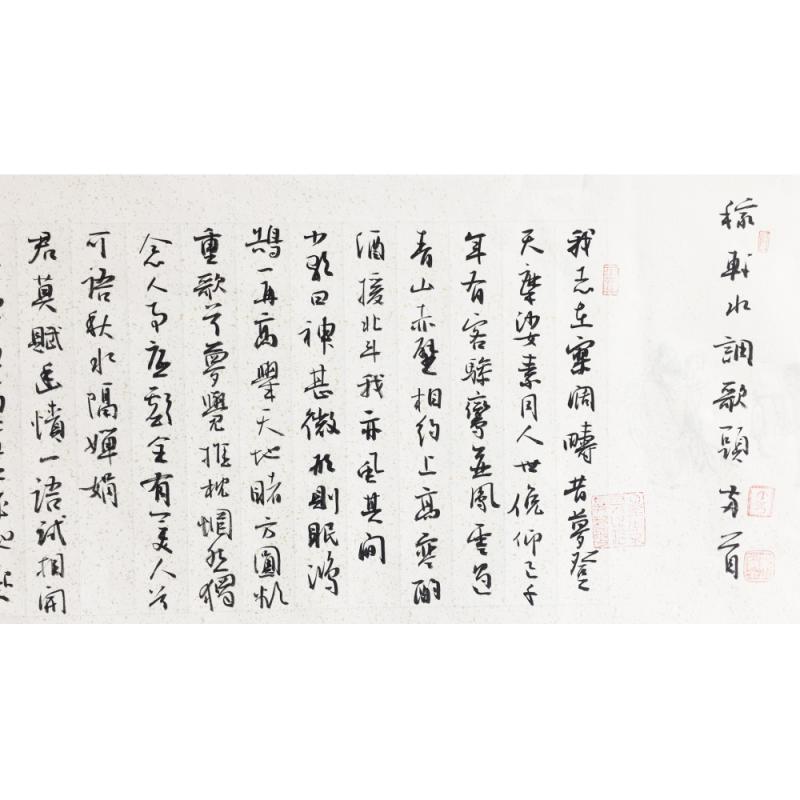 稼軒水調歌頭兩首
我志在寥闊疇昔夢登
天摩娑素月人世俛仰已千
年有客驂鸞並鳳雲遇
青山赤壁相約上高寒酌
酒援北斗我亦虱其間
少歌曰神甚微形則眠鴻
鵠一再高舉天地睹方圓欲
重歌兮夢覺推枕惘然獨
念人事底虧全有美人兮
可語秋水隔嬋娟
君莫賦幽憤一語試相開